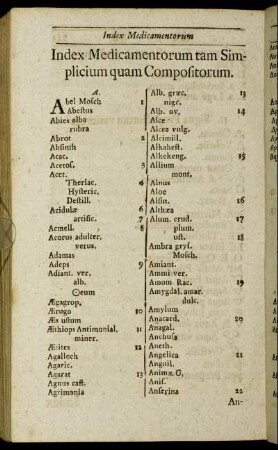 Index Medicamentorum
Index Medicamentorum tam Sim-
plicium quam Compositorum.
A.
Abel Mosch 1
Abestus
Abies alba
rubra
Abrot 2
Absinth
Acac.
Acetos. 3
Acet.
Theriac. 4
Hysteric.
Destill.
Acidulæ 6
artific. 7
Acmell. 8
Acorus adulter.
verus.
Adamas
Adeps 9
Adiant. ver.
alb.
Ægagrop.
Ærugo 10
Æs ustum
Æthiops Antimonial. 11
miner.
Ætites 12
Agalloch
Agaric.
Agarat 13
Agnus cast.
Agrimonia
Alb. græc. 13
nigr.
Alb. ov. 14
Alce
Alcea vulg.
Alcimill.
Alkahest.
Alkekeng. 15
Allium
mont.
Alnus
Aloe
Alsin. 16
Althæa
Alum. crud. 17
plum.
ust. 18
Ambra grys.
Mosch.
Amiant.
Ammi ver.
Amom Rac. 19
Amygdal. amar.
dulc.
Amylum
Anacard. 20
Anagal.
Anchusa
Aneth.
Angelica 21
Anguil.
Anis.
Anserina 22
An-